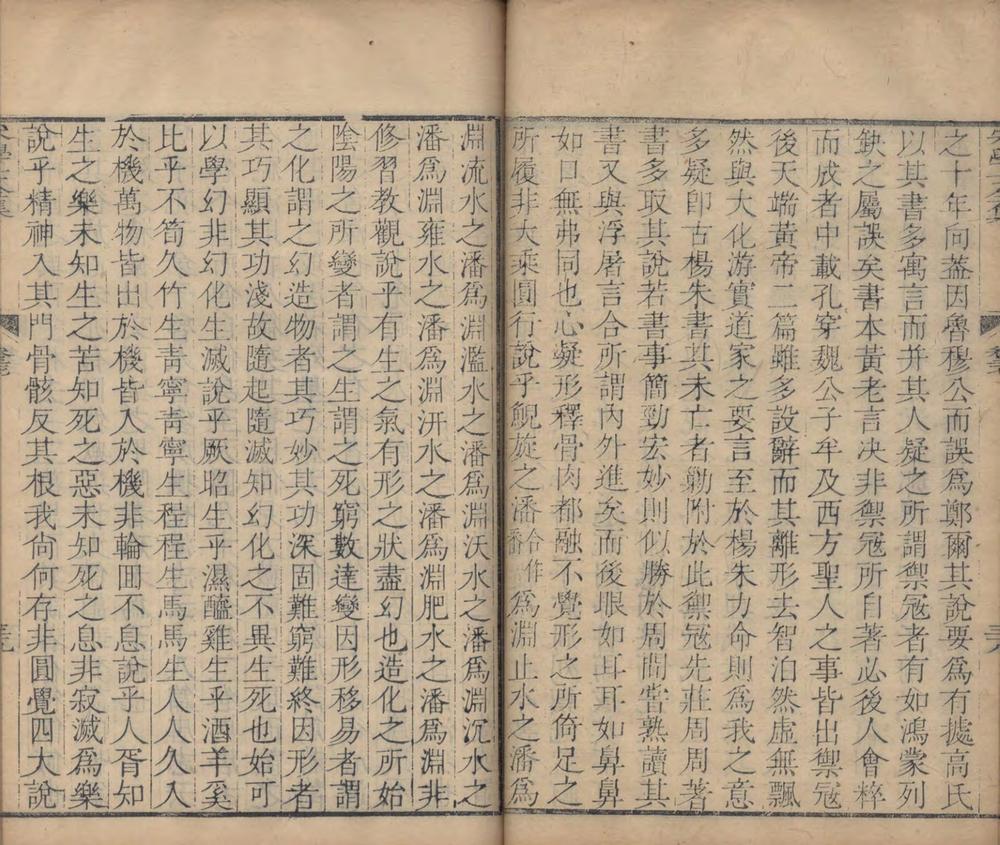 之十年向葢因魯穆公而誤爲鄭爾其說要爲有據高氏
以其書多寓言而并其人疑之所謂禦冦者有如鴻蒙列
缺之屬誤矣書本黃老言决非禦冦所自著必後人會粹
而成者中載孔穿魏公子牟及西方聖人之事皆出禦冦
後天端黃帝二篇雖多設辭而其離形去智泊然虛無飄
然與大化游實道家之要言至於楊朱力命則爲我之意
多疑卽古楊朱書其未亡者勦附於此禦冦先莊周周著
書多取其說若書事簡勁宏妙則似勝於周間嘗熟讀其
書又與浮屠言合所謂內外進矣而後眼如耳耳如鼻鼻
如口無弗同也心凝形釋骨肉都融不覺形之所倚足之
所履非大乘圓行說乎鯢旋之潘潘合作爲淵止水之潘爲
淵流水之潘爲淵濫水之潘爲淵沃水之潘爲淵沉水之
潘爲淵雍水之潘爲淵汧水之潘爲淵肥水之潘爲淵非
修習教觀說乎有生之氣有形之狀盡幻也造化之所始
陰陽之所變者謂之生謂之死窮數達變因形移易者謂
之化謂之幻造物者其巧妙其功深固難窮難終因形者
其巧顯其功淺故隨起隨滅知幻化之不異生死也始可
以學幻非幻化生滅說乎厥昭生乎濕醯雞生乎酒羊奚
比乎不筍久竹生青寧青寧生程程生馬馬生人人久入
於機萬物皆出於機皆入於機非輪囬不息說乎人胥知
生之樂未知生之苦知死之惡未知死之息非寂滅爲樂
說乎精神入其門骨骸反其根我尙何存非圓覺四大說